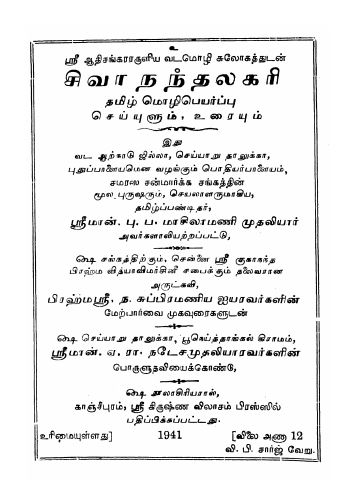 உ
ஸ்ரீ ஆதிசங்கராருளிய வடமொழி சுலோகத்துடன்
சிவாநந்தலகரி
தமிழ் மொழிபெயர்ப்பு
செய்யுளும், உரையும்
இது
வட ஆற்காடு ஜில்லா, செய்யாறு தாலுக்கா,
புதுப்பாளையமென வழங்கும் பொதியர்பாளையம்,
சமரஸ சன்மார்க்க சங்கத்தின்
மூல புருஷரும், செயலாளருமாகிய,
தமிழ்ப்பண்டிதர்,
ஸ்ரீமான். பு. ப. மாசிலாமணி முதலியார்
அவர்களாலியற்றப்பட்டு,
ஷை சங்கத்திற்கும், சென்னை ஸ்ரீ குகாநந்த
பிரஹ்ம வித்யாவிமர்சினீ சபைக்கும் தலைவரான
அருட்கவி,
பிரஹ்மஸ்ரீ, த. சுப்பிரமணிய ஐயரவர்களின்
மேற்பார்வை முகவுரைகளுடன்
ஷை செய்யாறு தாலுக்கா, பூகெய்த்தாங்கல் கிராமம்,
ஸ்ரீமான். ஏ. ரா. நடேசமுதலியாரவர்களின்
பொருளுதவியைக்கொண்டே,
ஷை நூலாசிரியரால்,
காஞ்சீபுரம், ஸ்ரீ கிருஷ்ண விலாசம் பிரஸ்ஸில்
பதிப்பிக்கப்பட்டது.
உரிமையுள்ளது] 1941 [விலை அணா 12
வி. பி. சார்ஜ் வேறு.